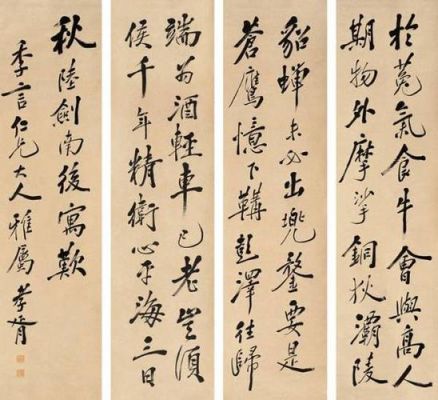 於菟氣食牛會與高人
期物外摩挲銅狄灞陵
貂蟬未必出兜鍪要是
蒼鷹憶下鞲彭澤往歸
端為酒輕車已老豈須
侯千年精衛心平海三日
秋陸劍南後寓歎
季言仁兄大人雅屬 孝胥